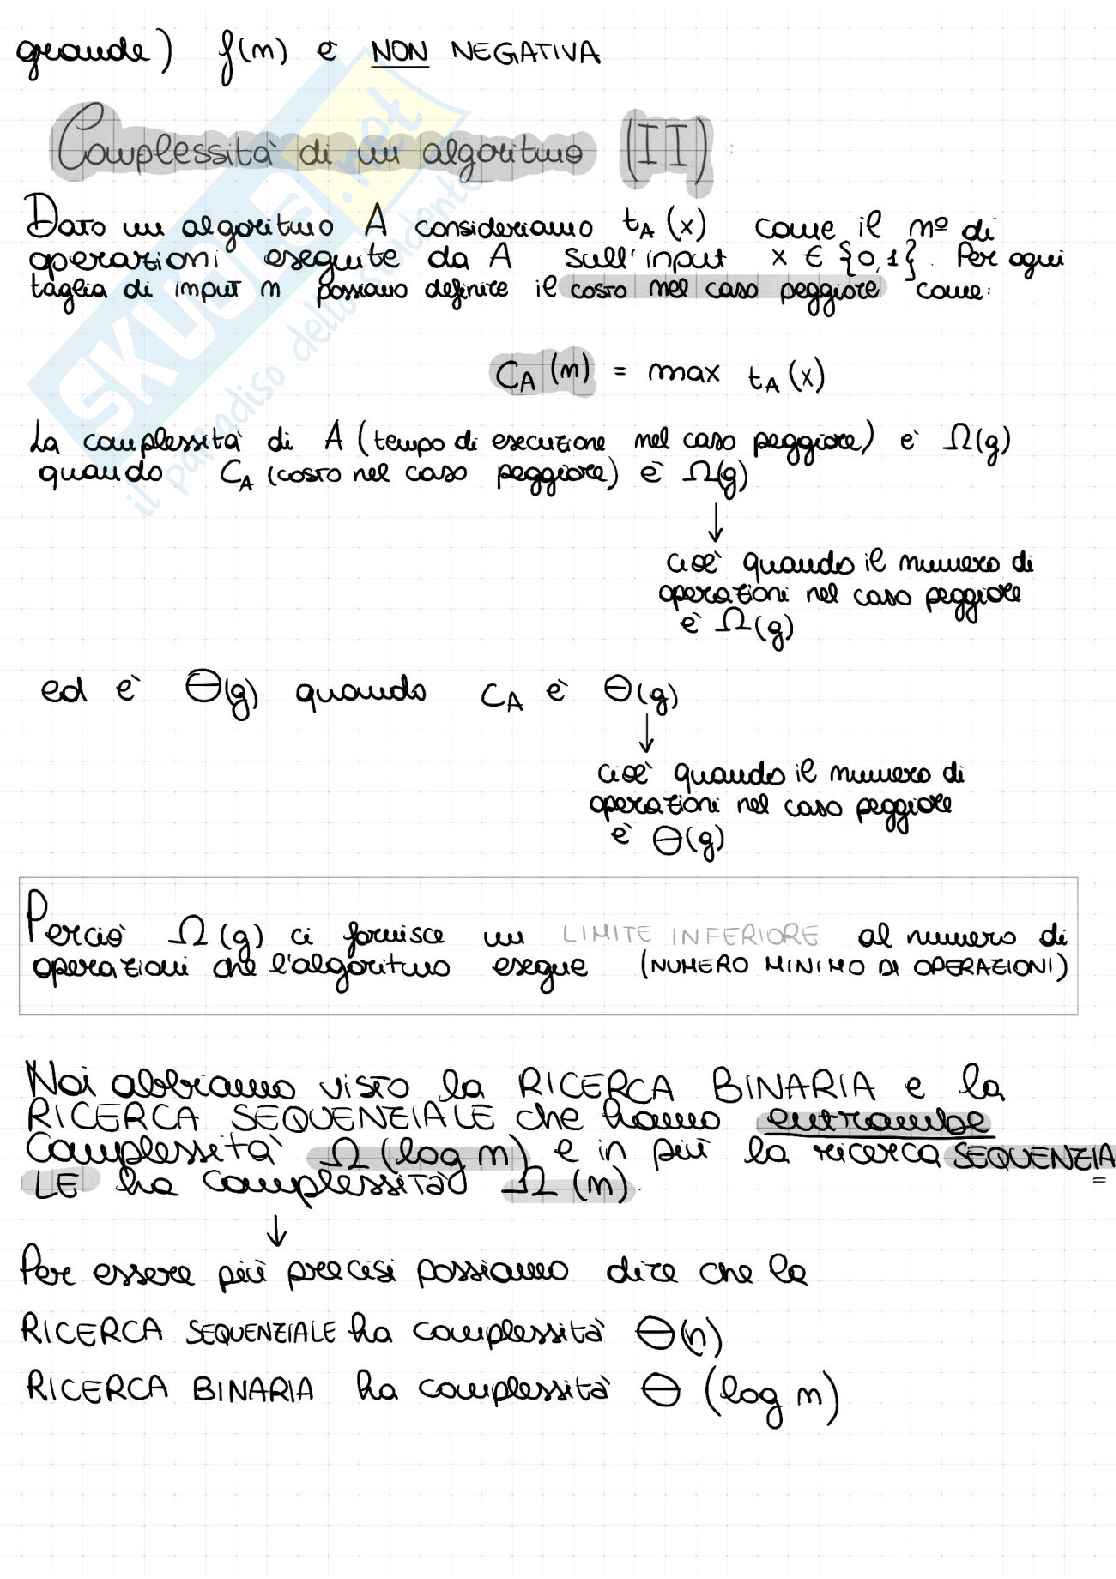 grande) f(n) è NON NEGATIVA
Complessità di un algoritmo (II)
Dato un algoritmo A consideriamo tA(x) come il nº di
operazioni eseguite da A sull'input x ∈ {0,1}. Per ogni
taglia di input n possiamo definire il costo nel caso peggiore come:
CA(n) = max tA(x)
La complessità di A (tempo di esecuzione nel caso peggiore) è Ω(g)
quando CA (costo nel caso peggiore) è Ω(g)
↓
cioè quando il numero di
operazioni nel caso peggiore
è Ω(g)
ed è Θ(g) quando CA è Θ(g)
↓
cioè quando il numero di
operazioni nel caso peggiore
è Θ(g)
Perciò Ω(g) ci fornisce un LIMITE INFERIORE al numero di
operazioni che l'algoritmo esegue (NUMERO MINIMO DI OPERAZIONI)
Noi abbiamo visto la RICERCA BINARIA e la
RICERCA SEQUENZIALE che hanno entrambe
complessità Ω(log n) e in più la ricerca SEQUENZIA
LE ha complessità Ω(n).
↓
Per essere più precisi possiamo dire che la
RICERCA SEQUENZIALE ha complessità Θ(n)
RICERCA BINARIA ha complessità Θ(log n)
SKUOLA.net
il paradiso dello studente